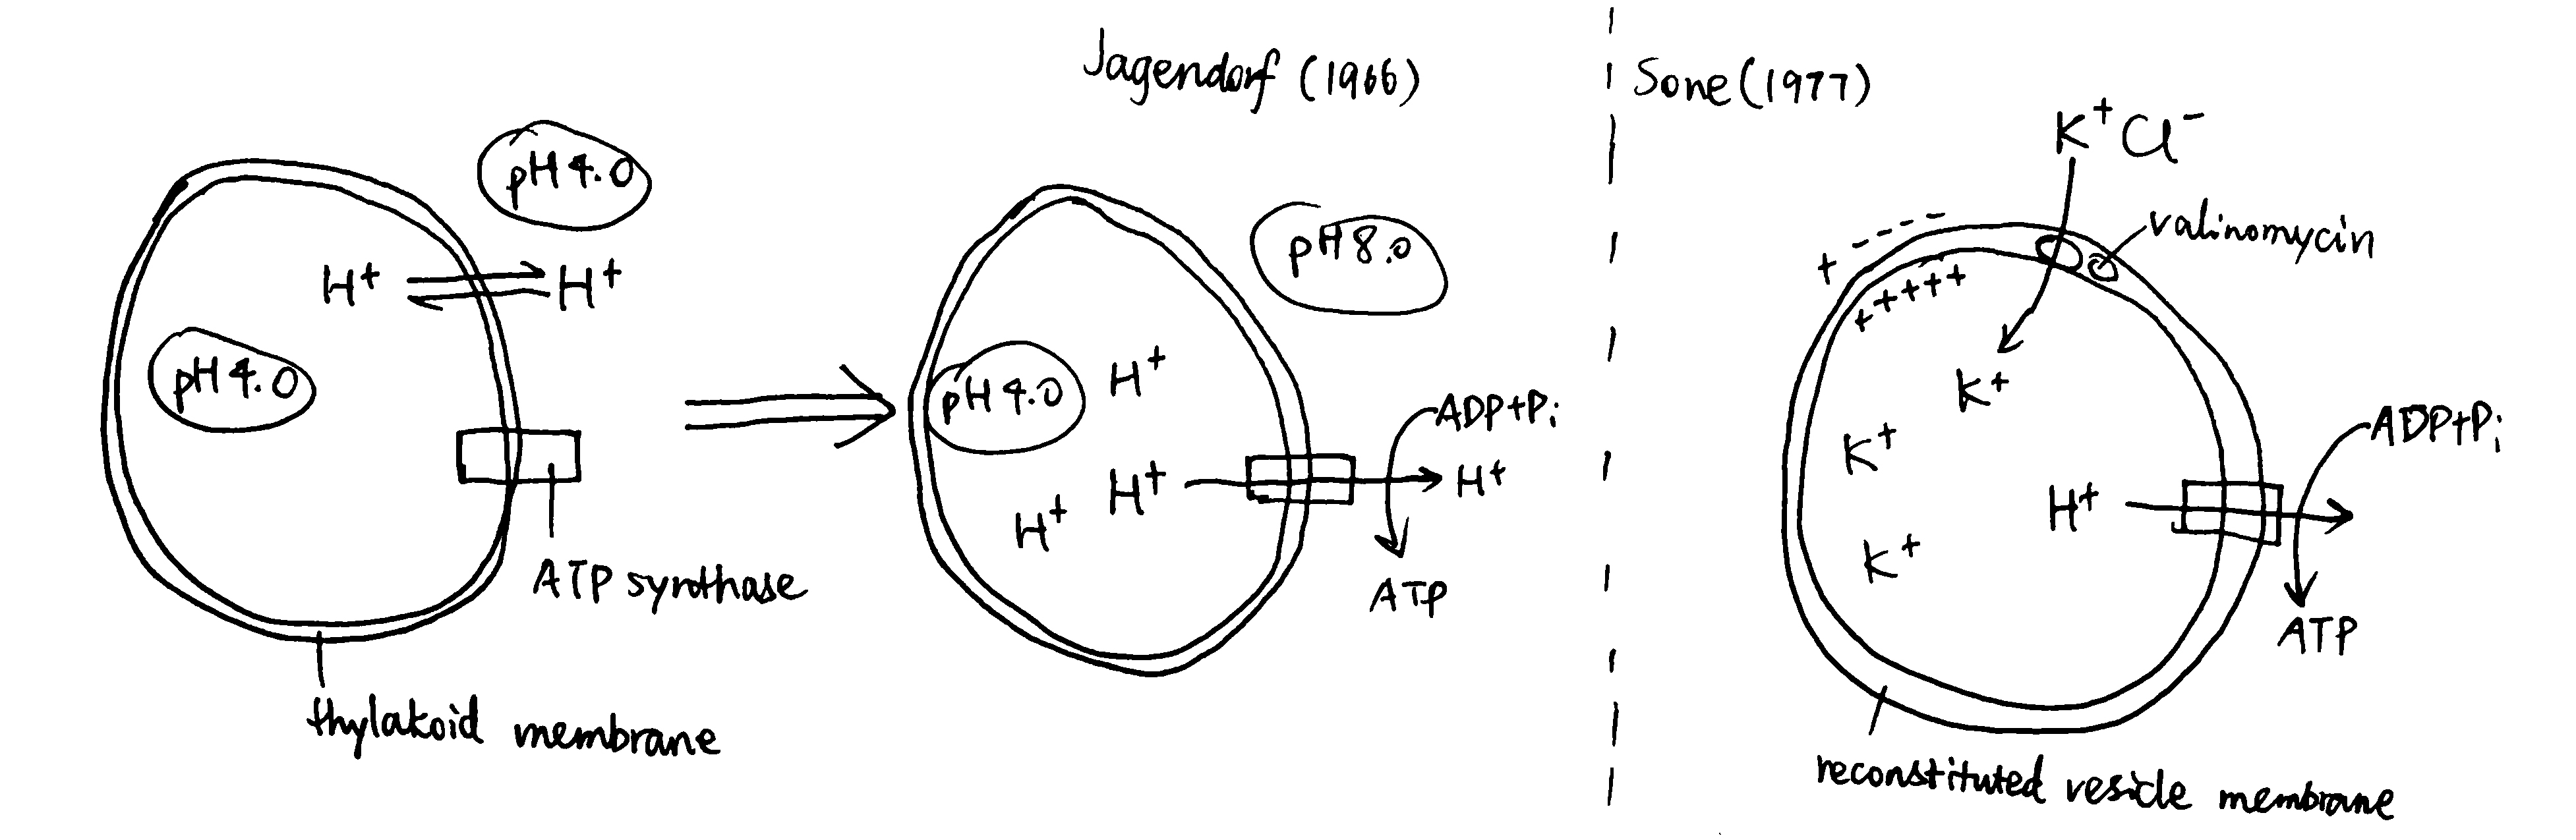 Jagendorf (1966)
pH 4.0
H⁺ H⁺
pH 4.0
ATP synthase
thylakoid membrane
pH 8.0
pH 4.0
H⁺
H⁺
H⁺
H⁺
ADP+Pi
ATP
Sone (1977)
K⁺ Cl⁻
valinomycin
+ - - - -
+ + + + +
K⁺
K⁺
K⁺
H⁺
ADP+Pi
ATP
reconstituted vesicle membrane